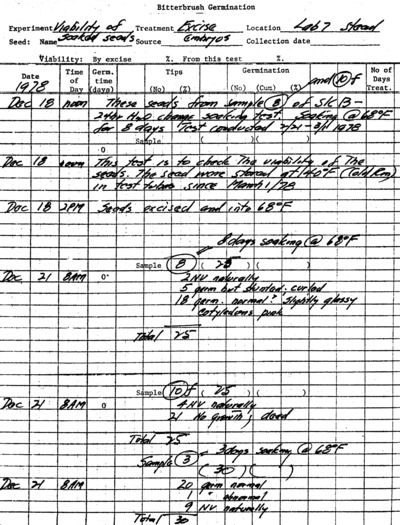 Bitterbrush Germination
Experiment Viability of Soaked seeds Treatment Excise Embryos Location Lab 7 stored
Seed: Name Source Collection date
Viability: By excise %. From this test %.
Date 1978 Time of Day Germ. time (days) Tips (No) (%) Germination (No) (Cum) (%) and 10f No of Days Treat.
Dec 18 noon These seeds from sample 8 of SKB-
24hr H2O change soaking test. Soaking @ 68°F
for 8 days Test conducted 2/21-3/1 1978
Sample ( ) ( )
0
Dec 18 noon This test is to check the viability of The
seeds. The seed were stored at 40°F (Cold Rm)
in test tubes since March 1/78
Dec 18 2PM Seeds excised and into 68°F
8 days soaking @ 68°F
Sample 8 ( 25 ) ( )
Dec 21 8AM 0 2 NV naturally
5 germ but stunted; curled
18 germ. normal? Slightly glassy
cotyledons pink
Total 25
Sample 10f ( 25 ) ( )
Dec 21 8AM 0 4 NV naturally
21 No growth; dead
Total 25
3 days soaking @ 68°F
Sample 3 ( 30 ) ( )
Dec 21 8AM 20 germ normal
1 " abnormal
9 NV naturally
Total 30